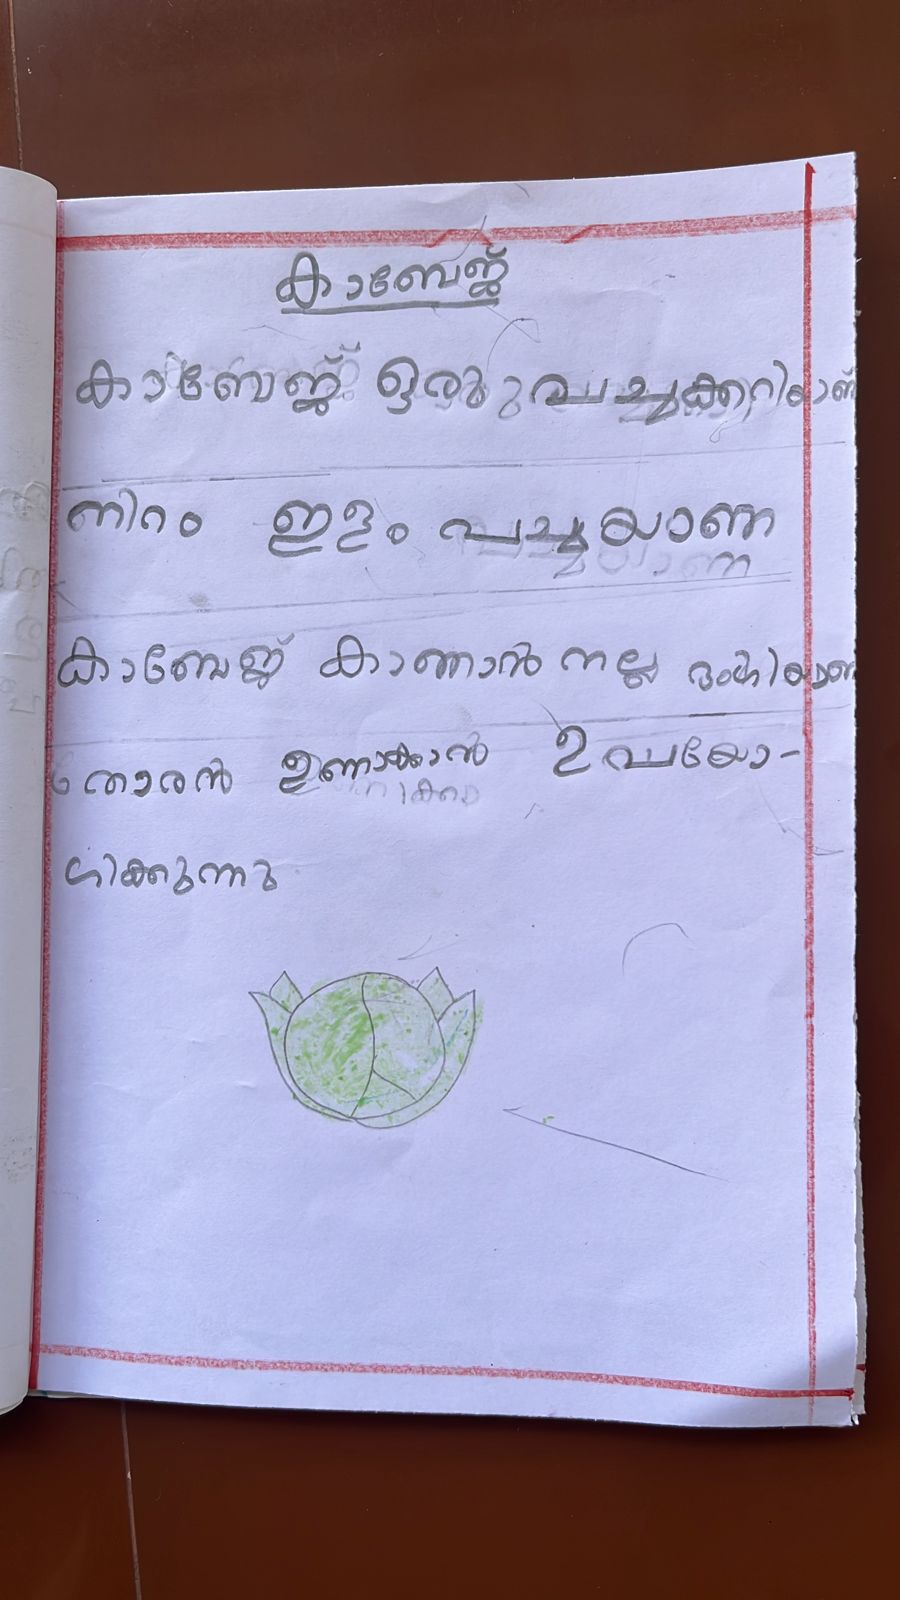 കാബേജ്
കാബേജ് ഒരു പച്ചക്കറിയാണ്
നിറം ഇളം പച്ചയാണ
കാബേജ് കാണാൻ നല്ല ഭംഗിയാണ
തോരൻ ഉണ്ടാക്കാൻ ഉപയോ-
ഗിക്കുന്നു